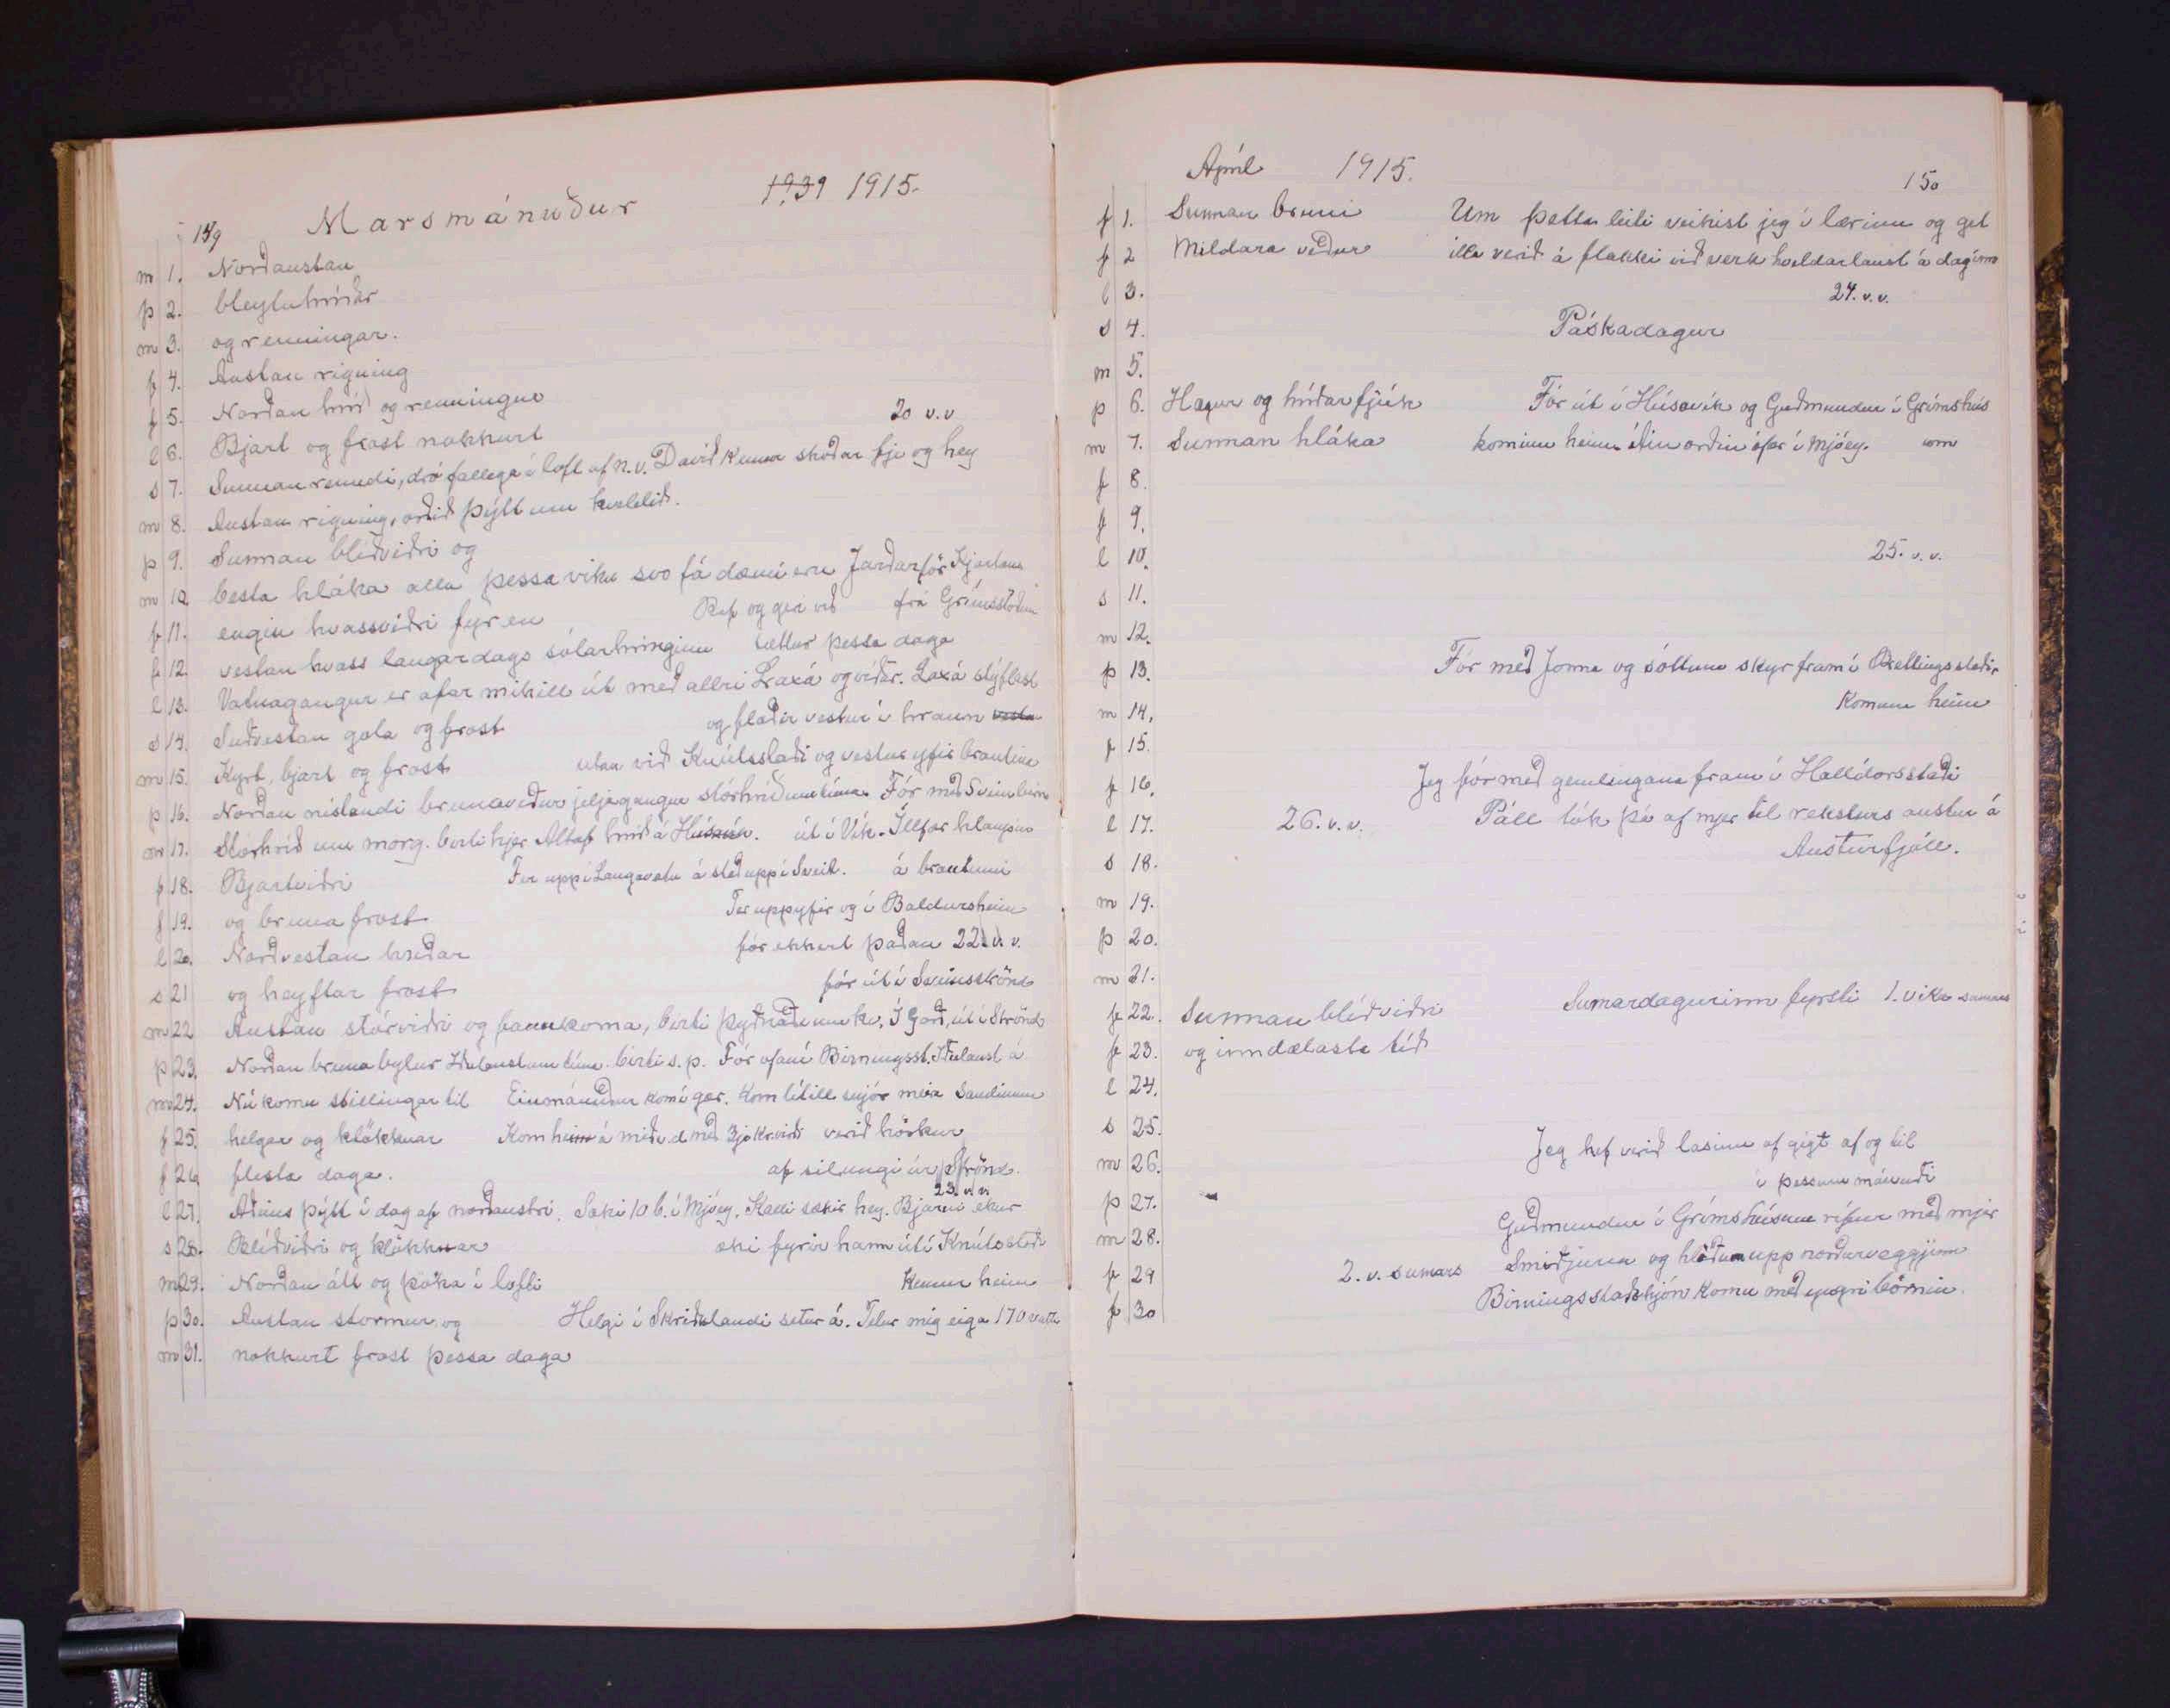 149 Marsmánuður 1939 1915.
m 1. Norðaustan
þ 2. bleytuhríðar
m 3. og renningar.
f 4. Austan rigning
f 5. Norðan hríð og renningur
l 6. Bjart og frost nokkurt 20 v.v
s 7. Sunnan renndi, dró fallega í loft af n.v. Davið kemur skoðar fje og hey
m 8. Austan rigning, orðið þýtt um kveldið.
þ 9. Sunnan blíðviðri og
m 10 besta hláka alla þessa viku svo fá dæmi eru Jarðarför Kjartans
f 11. engin hvassviðri fyr en Ref og gra við frá Grímsstöðum
f 12. vestan hvass laugardags sólarhringinn tættur þessa daga
l 13. Vatnagangur er afar mikill út með allri Laxá og víðar. Laxá stýflast
s 14. Suðvestan gola og frost og flæðir vestur í hraun vesta
m 15. Kyrt, bjart og frost utan við Knútsstaði og vestur yfir brautina
þ 16. Norðan nístandi brunaveður jeljagangur stórhríðum tíma. Fór með Sveinbirni
m 17. Stórhríð um morg. birti hjer Altaf hríð á Húsavík. út í Vík. Illfær hlaupin
f 18. Bjartviðri Fer uppí Laugavatn á stað uppí Sveit. á brautinni
f 19. og bruna frost Fer uppyfir og í Baldursheim
l 20. Norðvestan hríðar fór ekkert þaðan 22. v. v.
s 21 og heyftar frost fór út í Strönd
m 22 Austan stórviðri og fannkoma, birti þyðnaði um kv. Í Garð, út í Strönd
þ 23. Norðan bruna bylur birti s.p. Fór ofaní Birningsst. á
m 24. Nú komu stillingar til Einmánuður kom í gær. Kom lítill snjór meia Sandinum
f 25. helgar og klökkvar Kom heim á með 3 verið hörkur
f 26 flesta daga. af silungi úr Strönd.
23. v.v.
l 27. Aðeins þýtt í dag af norðaustri. Sæki 10 b. í Mjóey. Kalli sækir hey. Bjarni ekur
s 28. Blíðviðri og klökkvar eki fyrir hann út í Knútsstaði
m 29. Norðan átt og þoka í lofti kemur heim
þ 30. Austan stormur og Helgi í Skriðulandi setur á. Telur mig eiga 170
m 31. nokkurt frost þessa daga
Apríl 1915. 150
f 1. Sunnan bruni Um þetta leiti veikist jeg í lærinu og get
f 2 Mildara veður illa verið á flakki við verk hvíldarlaust á daginn
l 3. 24. v.v.
s 4. Páskadagur
m 5.
þ 6. Hægur og hríðarfjúk Fór út í Húsavík og Guðmundur í Grímshús
m 7. Sunnan hláka kominn heim áin orðin ófær í Mjóey.
f 8.
f 9.
l 10. 25. v.v.
s 11.
m 12.
þ 13. Fór með Jonna og sóttum skyr fram í Brettingsstaði
m 14. Komum heim
f 15.
f 16. Jeg fór með gemlingana fram í Halldórsstaði
l 17. 26. v.v. Páll tók þá af mjer til reksturs austur á
s 18. Austurfjöll.
m 19.
þ 20.
m 21.
f 22. Sunnan blíðviðri Sumardagurinn fyrsti 1. vika sumars
f 23. og inndælasta tíð
l 24.
s 25. Jeg hef verið lasinn af gigt af og til
m 26. í þessum mánuði
þ 27. Guðmundur í Grímshúsum rífur með mjer
m 28. Smiðjuna og hlöðum upp norðurveggjinn
f 29 2. v. sumars Birningsstaðahjón komu með yngri börnin.
f 30